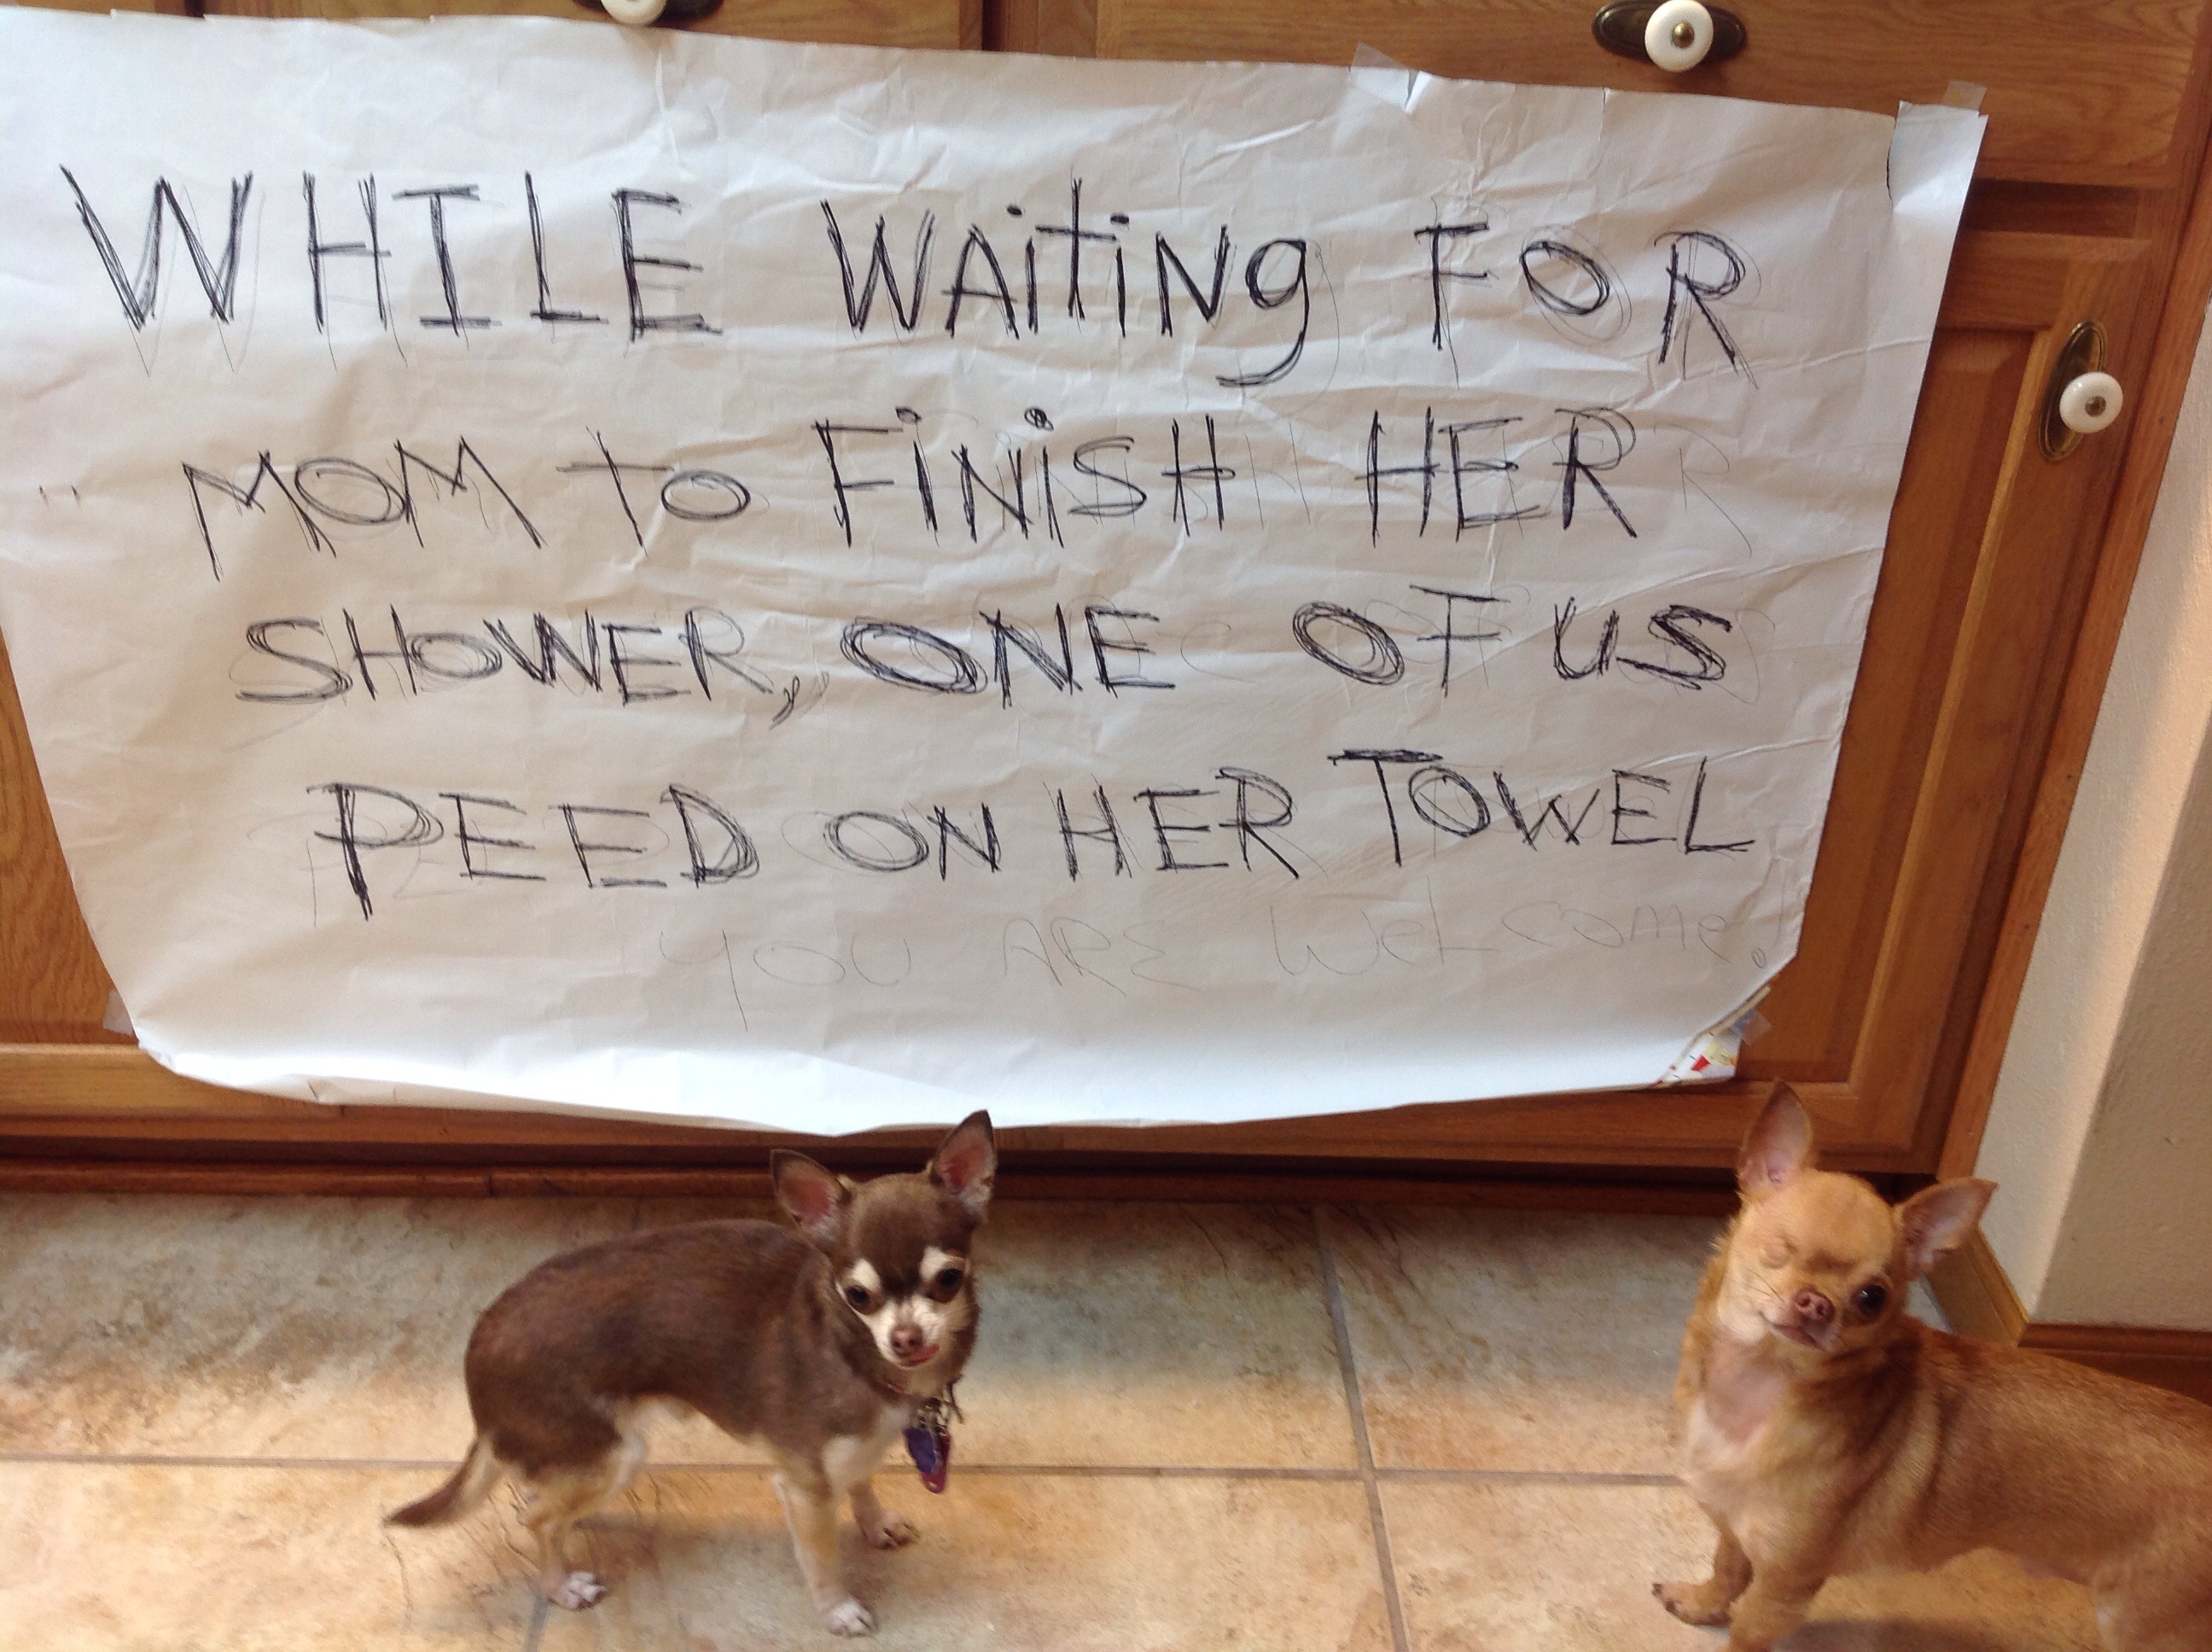 WHILE WAiTiNg FOR
MOM To FiNiSH HER
SHOWER, ONE OF US
PEED ON HER TOWEL
YOU ARE WELCOME!